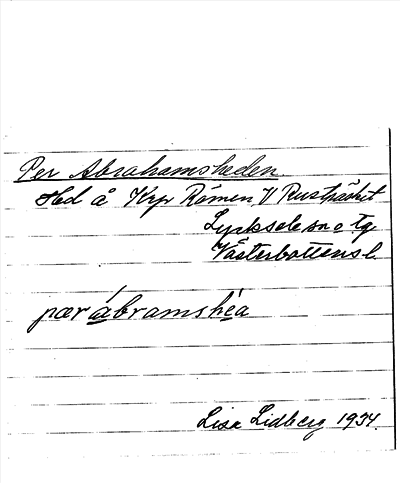 Per Abrahamsheden
Hed å Krp Råmen V Rusträsket
Lycksele sn o tg
Västerbottens l.
pær ábramshéa
Lisa Lidberg 1934.